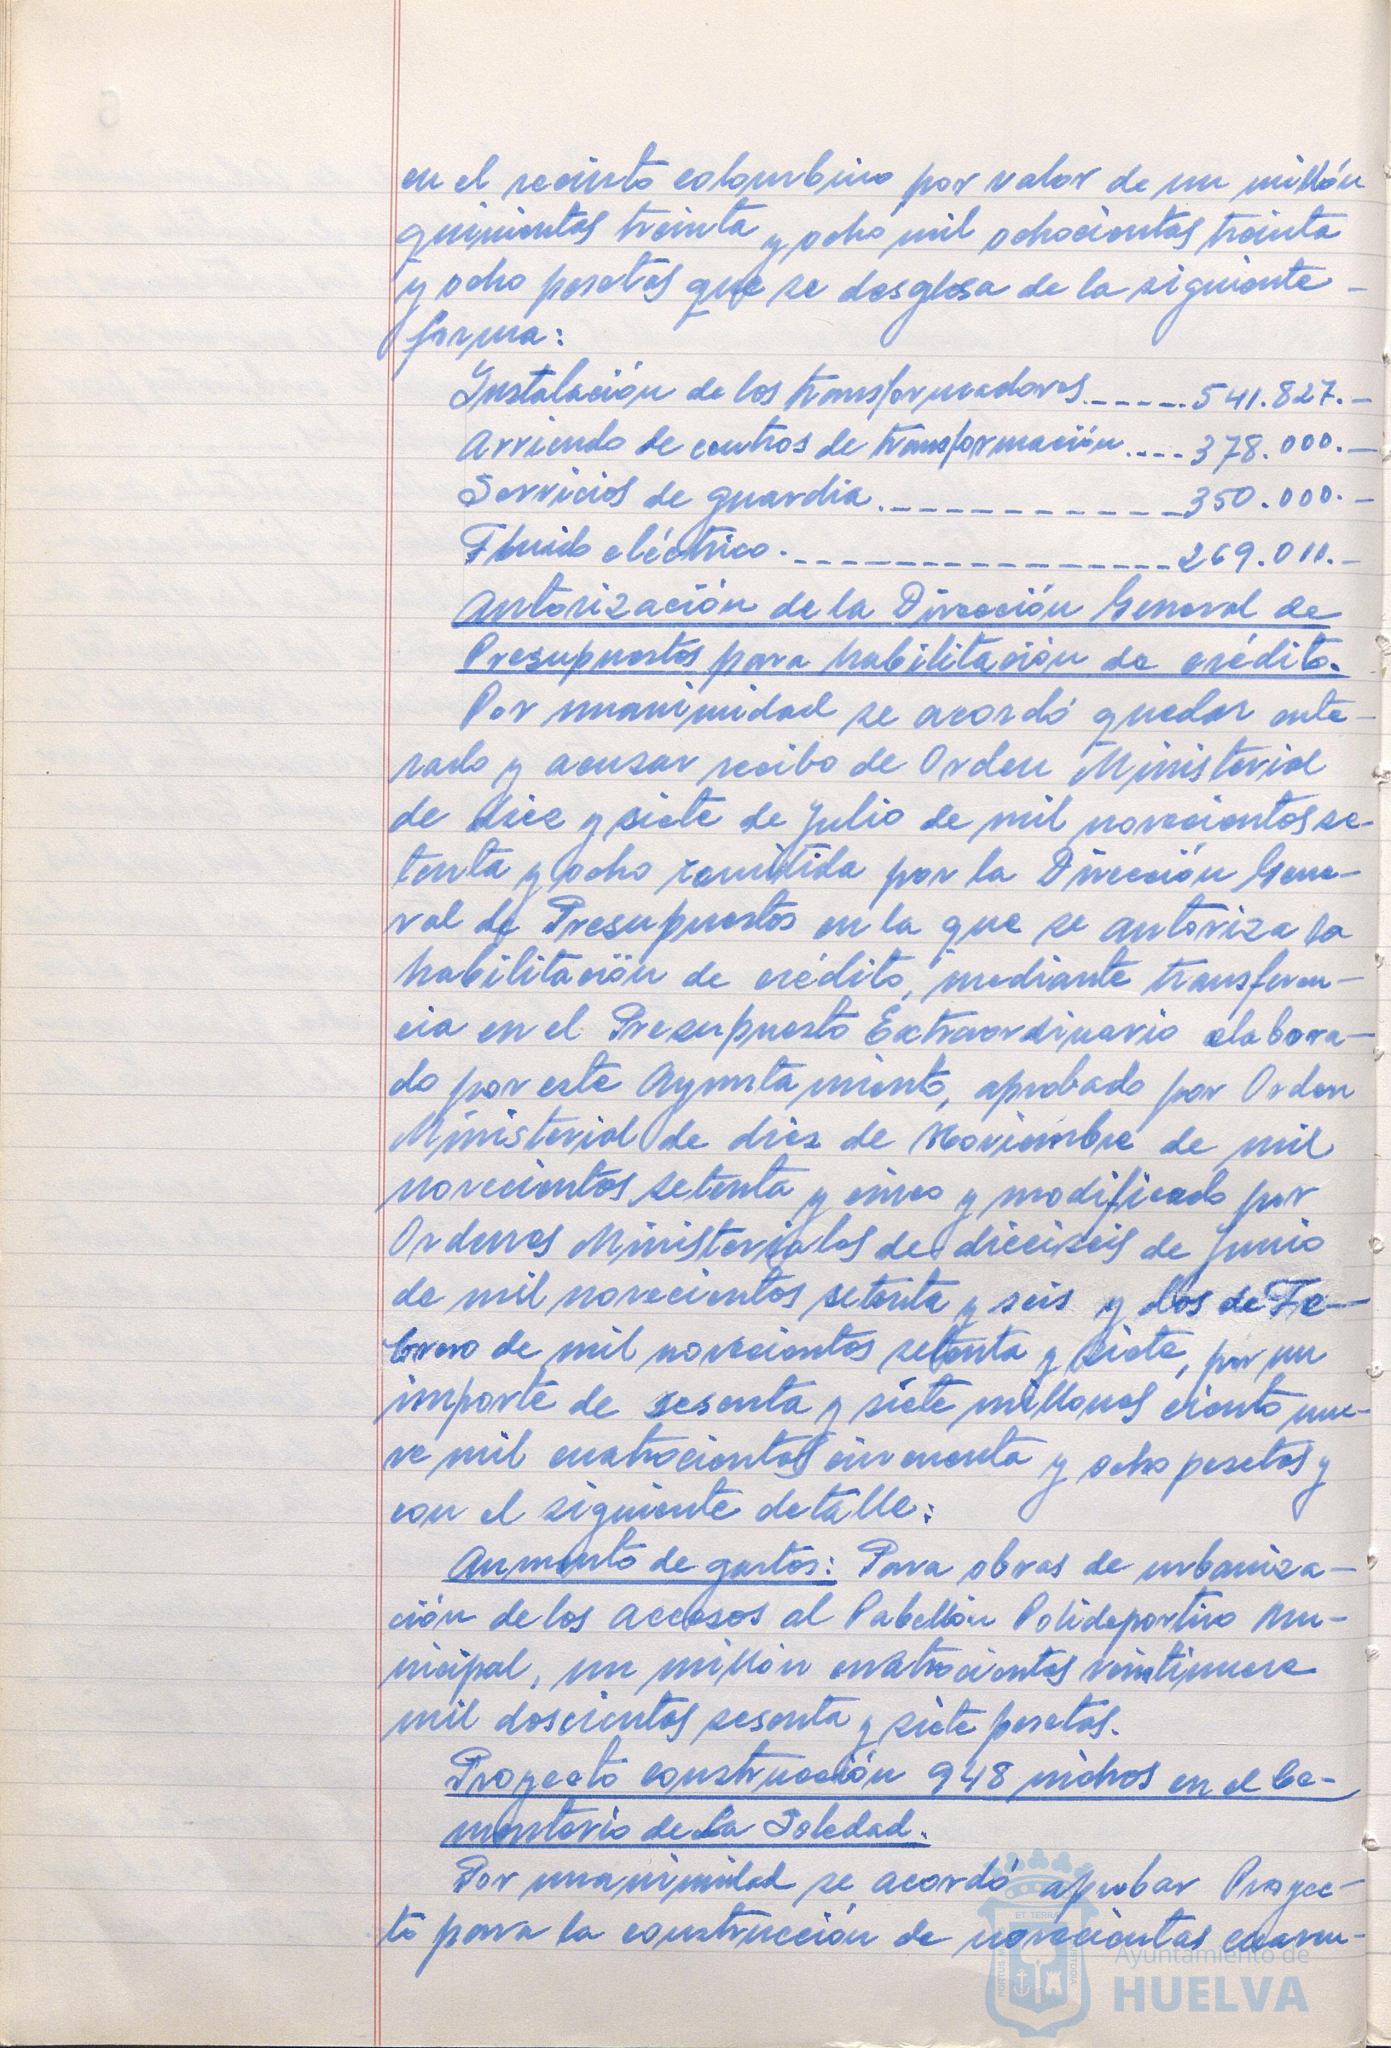 en el recinto colombino por valor de un millón
quinientas treinta y ocho mil ochocientas treinta
y ocho pesetas que se desglosa de la siguiente -
forma:
Instalación de los transformadores.-----541.827.-
Arriendo de centros de transformación....378.000.-
Servicios de guardia.------------350.000.-
Fluido eléctrico.----------------269.011.-
Autorización de la Dirección General de
Presupuestos para habilitación de crédito.
Por unanimidad se acordó quedar ente-
rado y acusar recibo de Orden Ministerial
de diez y siete de Julio de mil novecientos se-
tenta y ocho remitida por la Dirección Gene-
ral de Presupuestos en la que se autoriza la
habilitación de crédito, mediante transferen-
cia en el Presupuesto Extraordinario elabora-
do por este Ayuntamiento, aprobado por Orden
Ministerial de diez de Noviembre de mil
novecientos setenta y cinco y modificado por
Ordenes Ministeriales de dieciseis de Junio
de mil novecientos setenta y seis y dos de Fe-
brero de mil novecientos setenta y siete, por un
importe de sesenta y siete millones ciento nue-
ve mil cuatrocientas cincuenta y ocho pesetas y
con el siguiente detalle:
Aumento de gastos: Para obras de urbaniza-
ción de los accesos al Pabellón Polideportivo Mu-
nicipal, un millón cuatrocientas veintinueve
mil doscientas sesenta y siete pesetas.
Proyecto construcción 948 nichos en el Ce-
menterio de la Soledad.
Por unanimidad se acordó aprobar Proyec-
to para la construcción de novecientos cuaren-
Ayuntamiento de
HUELVA